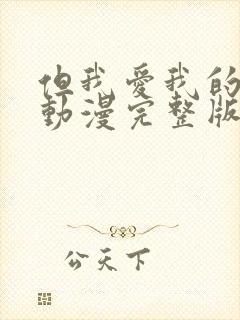 但我愛我的
動漫完整版
公天下